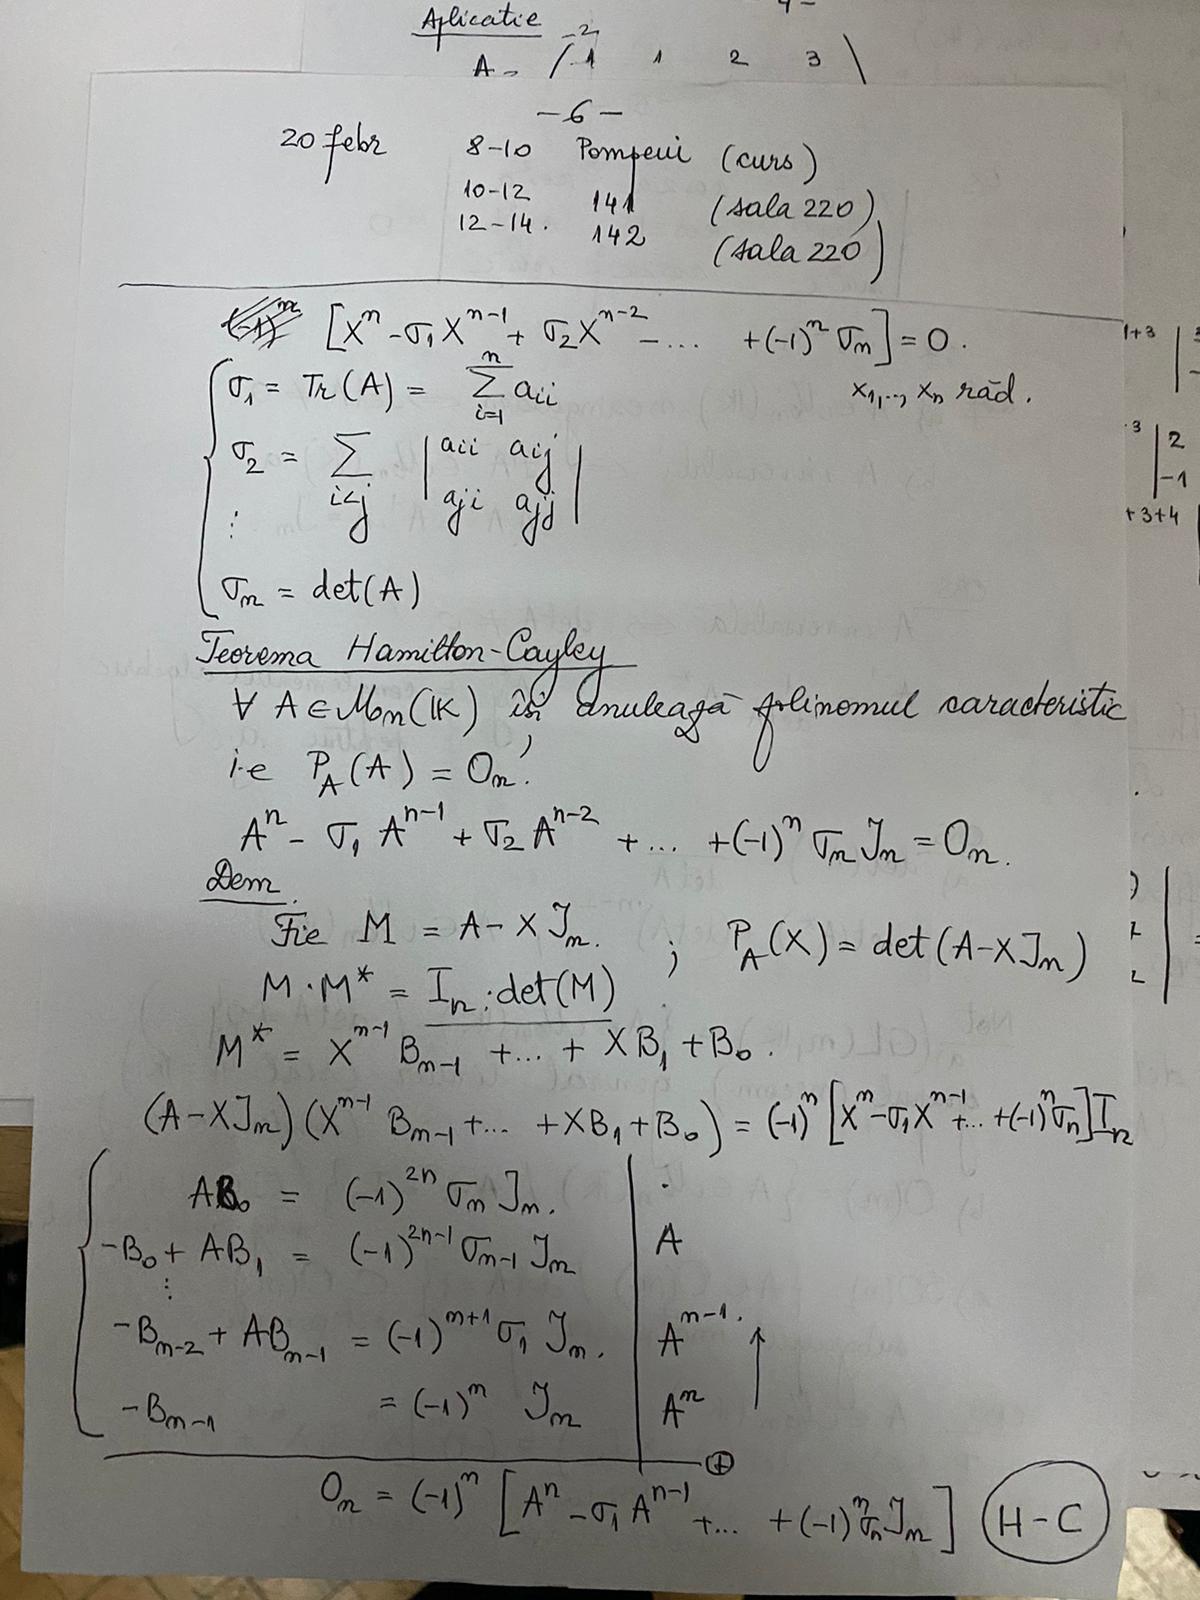 Aplicatie
-2
A = ( -1 1 2 3 )
- 6 -
20 febr 8-10 Pompeiu (curs)
10-12 141 (sala 220)
12-14. 142 (sala 220)
[X^n - σ_1 X^{n-1} + σ_2 X^{n-2} - ... + (-1)^n σ_n] = 0.
σ_1 = Tr(A) = Σ_{i=1}^{n} a_{ii} x_1,.., x_n răd.
σ_2 = Σ_{i<j} | a_{ii} a_{ij} |
| a_{ji} a_{jj} |
⋮
σ_n = det(A)
Teorema Hamilton-Cayley
∀ A ∈ M_n(K) își anulează polinomul caracteristic
i.e P_A(A) = O_n.
A^n - σ_1 A^{n-1} + σ_2 A^{n-2} + ... + (-1)^n σ_n I_n = O_n.
Dem.
Fie M = A - X I_n. ; P_A(X) = det(A - X I_n)
M · M* = I_n · det(M)
M* = X^{n-1} B_{n-1} + ... + X B_1 + B_0.
(A - X I_n)(X^{n-1} B_{n-1} + ... + X B_1 + B_0) = (-1)^n [X^n - σ_1 X^{n-1} + ... + (-1)^n σ_n] I_n
A B_0 = (-1)^{2n} σ_n I_n. | .
-B_0 + A B_1 = (-1)^{2n-1} σ_{n-1} I_n | A
⋮
-B_{n-2} + A B_{n-1} = (-1)^{n+1} σ_1 I_n. | A^{n-1}. ↑
-B_{n-1} = (-1)^n I_n | A^n
⊕
O_n = (-1)^n [A^n - σ_1 A^{n-1} + ... + (-1)^n σ_n I_n] H-C